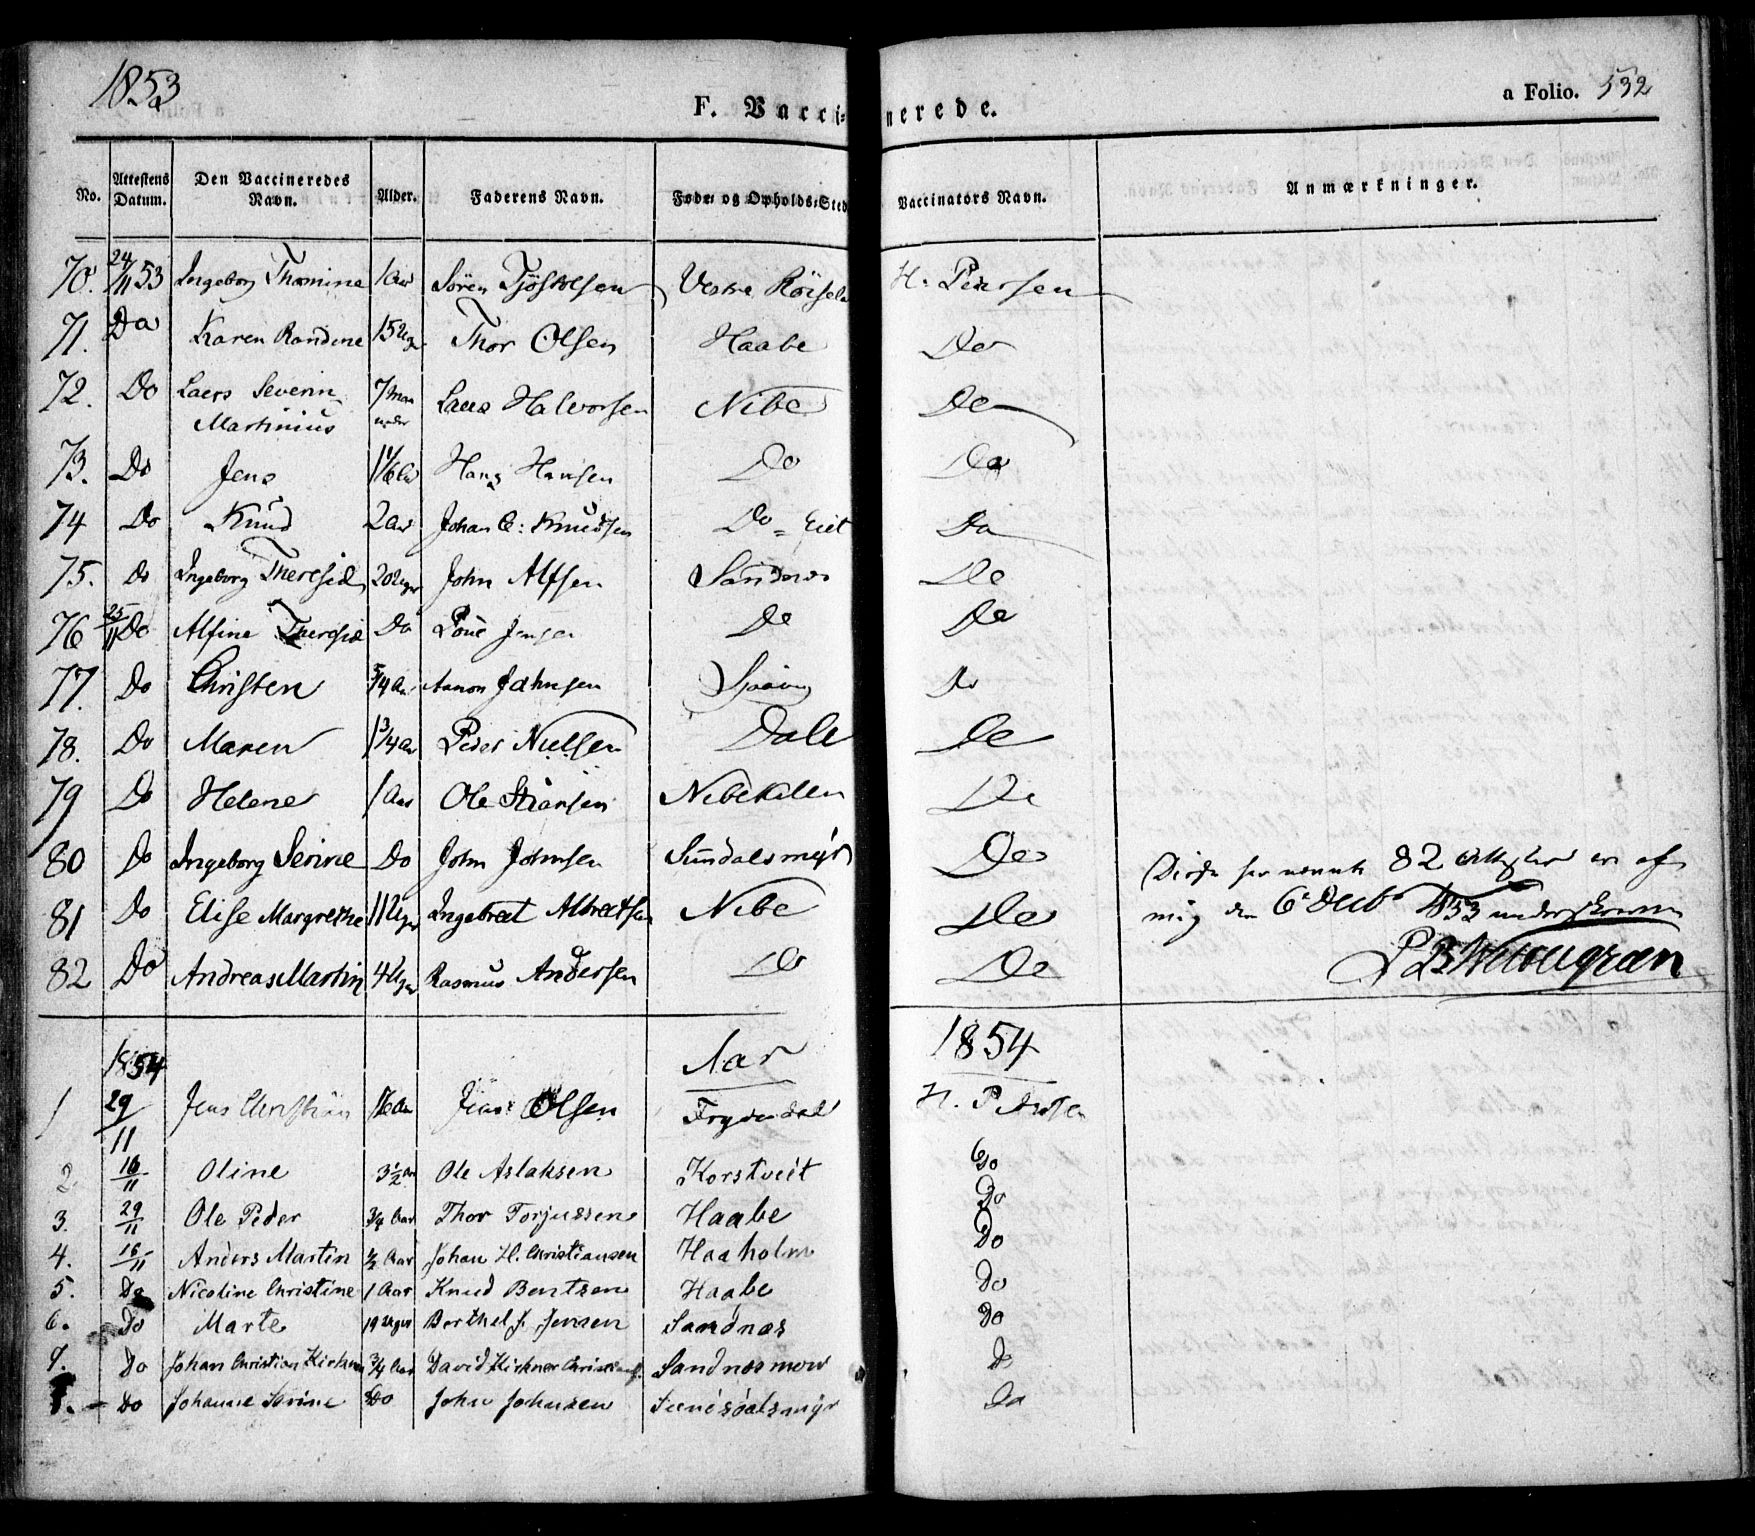 1853
F. Vaccinerede.
a Folio. 532
No. Attestens Datum. Den Vaccineredes Navn. Alder. Faderens Navn. Føde- og Opholds-Sted Vaccinators Navn. Anmærkninger.
70. 24/11 53 Ingeborg Thomine 1 Aar Sören H. Pedersen
71. Do Karen Randine 15 Uger Thor Olsen Haabe Do
72. Do Laers Severin 7 Maa Laers Halvorsen Nibe Do
Martinius neder
73. Do Jens 1 1/6 Aar Hans Hansen Do Do
74 Do Knud 2 Aar Johan C: Knudsen Do = Eiet Do
75. Do Ingeborg Theresia 20 Uger John Alfsen Sandnes Do
76 25/11 Do Alfine Theresia Do Jensen Do Do
77. Do Christen 5/4 Aar Aanon Jahnsen Do
78. Do Maren 1 3/4 Aar Peder Nielsen Dale Do
79 Do Helene 1 Aar Ole Nibekilen Do
80 Do Ingeborg Serine Do John Johnsen Sundalsmyr Do
81 Do Elise Margrethe 11 Uger Ingebret Albretsen Nibe Do
82 Do Andreas Martin 4 Uger Rasmus Andersen Do Do
82 er af
mig den 6 Decb 1853 underskreven
1854 Aar 1854
1 29/11 Jens Christian Olsen Frydendal H. Pedersen
2. 16/11 Oline 3 1/2 Aar Ole Aslaksen Korstveit Do
3. 29/11 Ole Peder 3/4 Aar Thor Torjussen Haabe Do
4. 16/11 Anders Martin 1/2 Aar Johan H. Christiansen Haaholm Do
5. Do Nicoline Christine 1 Aar Knud Bentsen Haabe Do
6. Do Marte 19 Uger Berthel J. Jensen Sandnæs Do
7. Do Johan Christian Kirkner 3/4 Aar David Kirkner Sandnæs Do
8. Do Johanne Serine Do John Johnsen Do